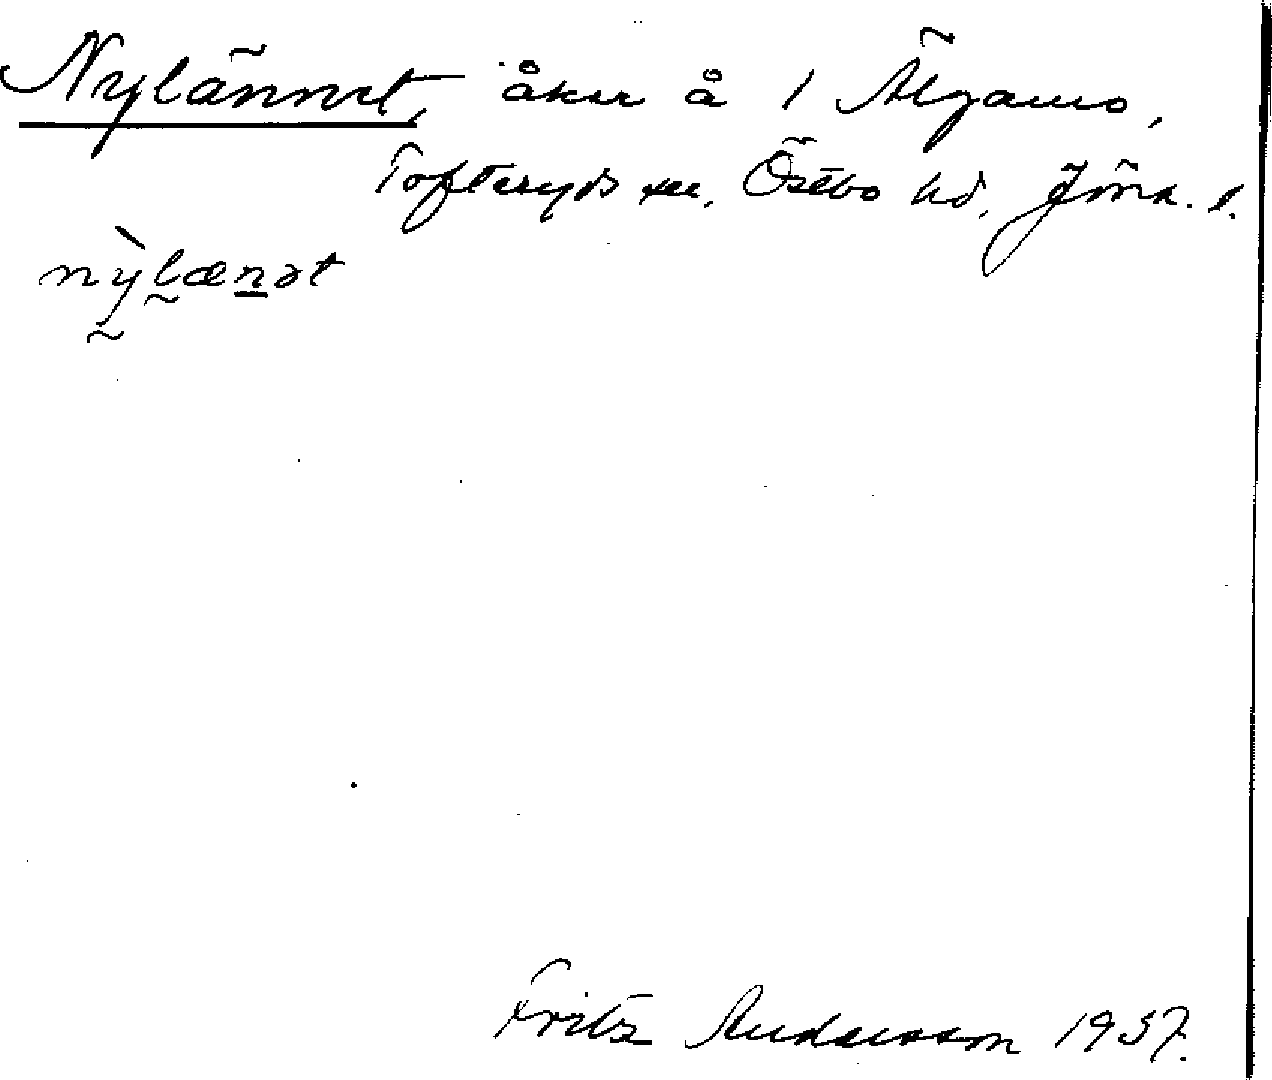 Nylännet, åker å 1 Älgamo,
Tofteryds sn, Östbo hd, Jönk. l.
nỳlænət
Fritz Andersson 1937.